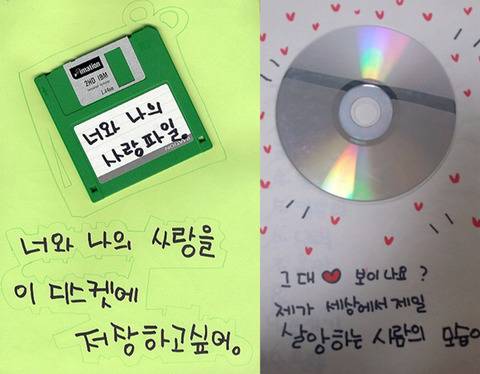 imation
2HD IBM
너와 나의
사랑파일.
너와 나의 사랑을
이 디스켓에
저장하고싶어.
그대 ♥ 보이나요 ?
제가 세상에서 제일
살앙하는 사람의 모습이